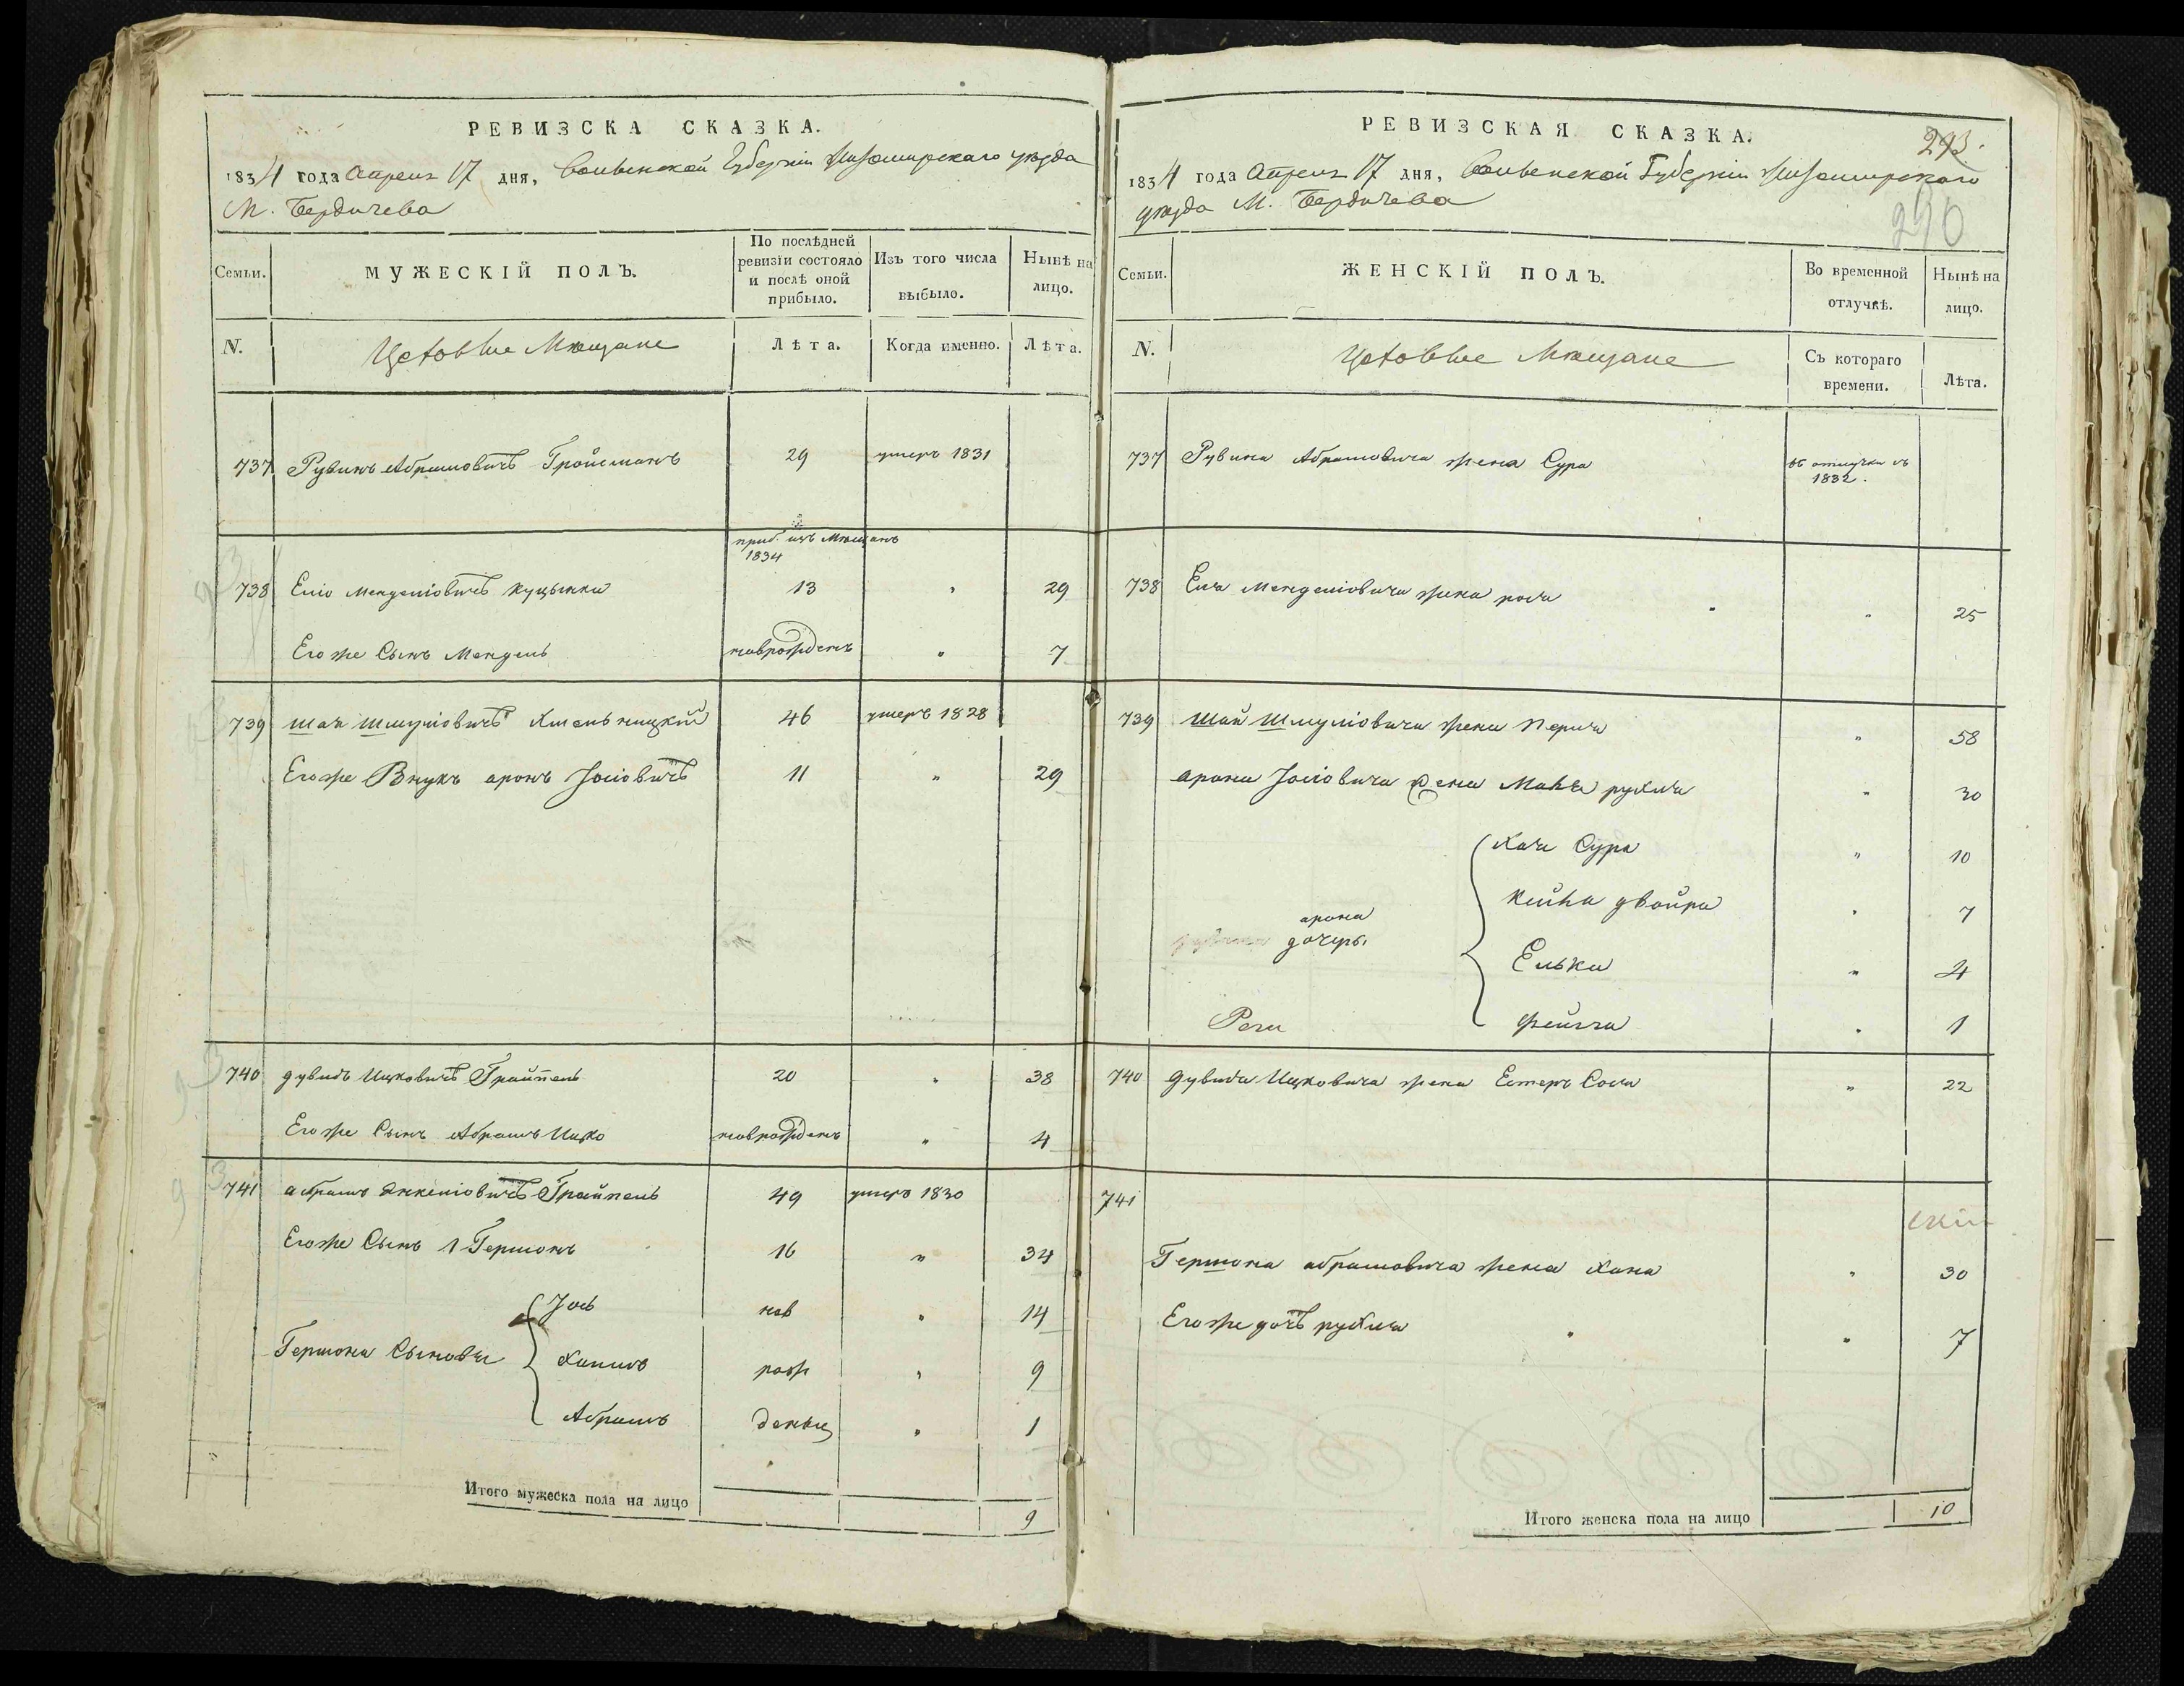 РЕВИЗСКА СКАЗКА.
1834 года Апреля 17 дня, Волынской Губерніи Житомирскаго уезда
М. Бердичева
Семьи.
МУЖЕСКІЙ ПОЛЪ.
По послѣдней ревизіи состояло и послѣ оной прибыло.
Изъ того числа выбыло.
Нынѣ на лицо.
N.
Цеховые Мещане
Лѣта.
Когда именно.
Лѣта.
737 Рувинъ Абрамовичъ Гройсманъ 29 умеръ 1831
приб. изъ Мещанъ
1834
738 Еліо Менделіовичъ 13 " 29
Его же Сынъ Мендель новрожденъ " 7
739 Шая Шмуліовичъ Хмельницкій 46 умеръ 1828
Его же Внукъ аронъ Іосіовичъ 11 " 29
740 дувидъ Ицковичъ Грайпель 20 " 38
Его же Сынъ Абрамъ Ицко новрожденъ " 4
741 абрамъ Янкеліовичъ Грайпель 49 умеръ 1830
Его же Сынъ 1 Гершонъ 16 " 34
Іось нов " 14
Гершона Сыновья Хаимъ рож " 9
Абрамъ денны " 1
Итого мужеска пола на лицо 9
РЕВИЗСКАЯ СКАЗКА.
293.
290
1834 года Апреля 17 дня, Волынской Губерніи Житомирскаго
уезда М. Бердичева
Семьи.
ЖЕНСКІЙ ПОЛЪ.
Во временной отлучкѣ.
Нынѣ на лицо.
N.
Цеховые Мещане
Съ котораго времени.
Лѣта.
737 Рувина Абрамовича жена Сура въ отлучки съ
1832.
738 Еля Менделіовича жена " 25
739 Шаи Шмуліовича жена Перля " 58
арона Іосіовича жена Рухля " 30
Хая Сура " 10
Кейла двойра " 7
арона
дочеры
Елька " 4
Фейга " 1
740 Дувида Ицковича жена Естеръ Сося " 22
741
Гершона абрамовича жена Хана " 30
Его же дочь рухля " 7
Итого женска пола на лицо 10